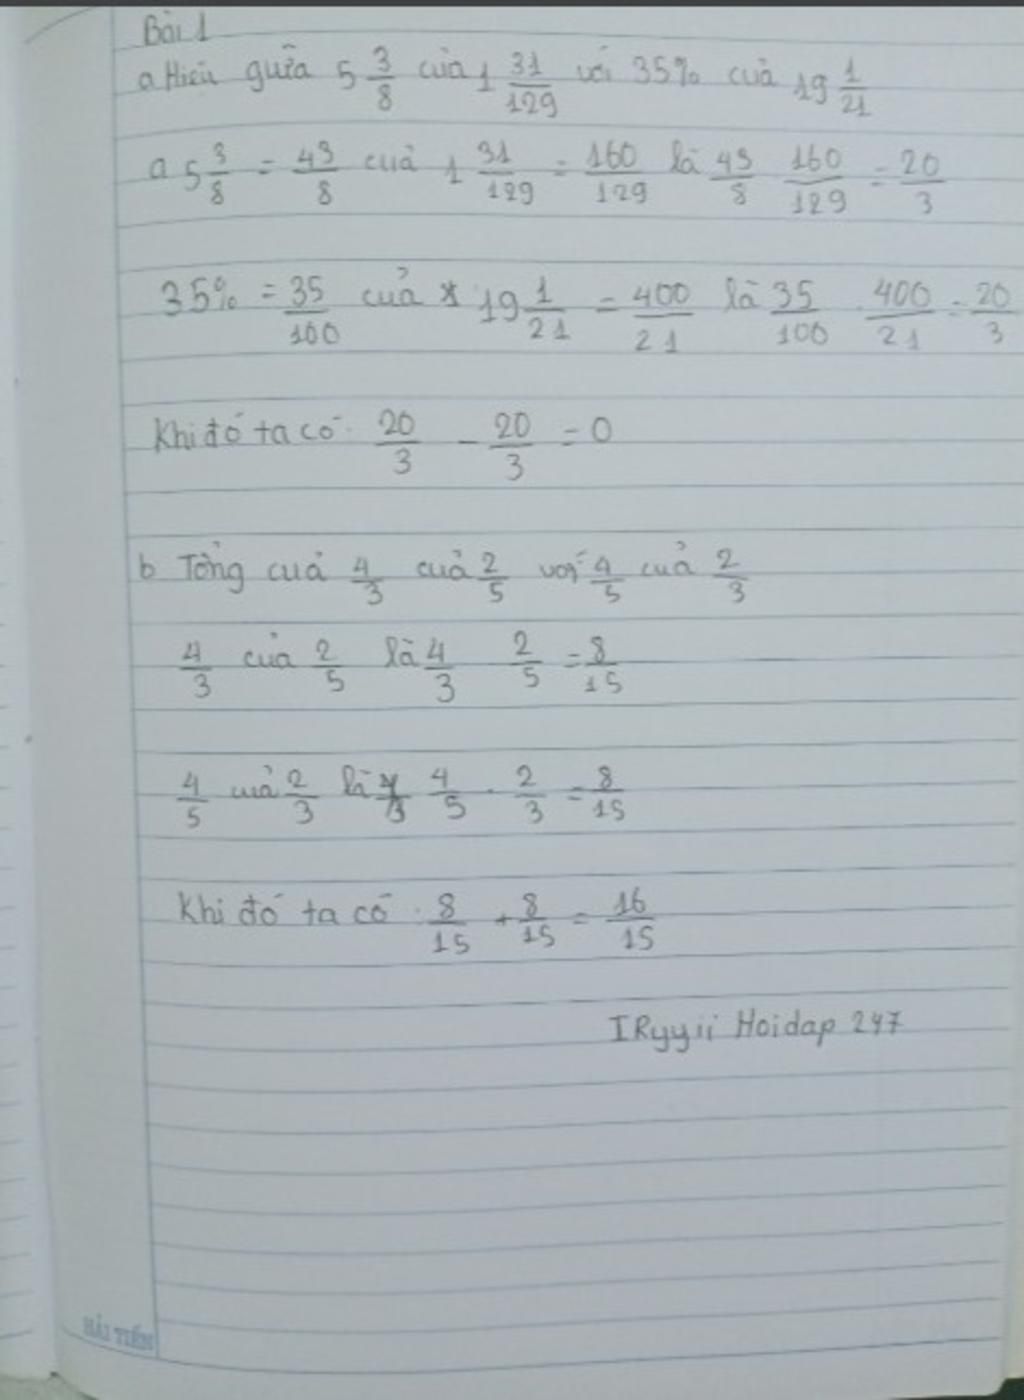 Bài 1
a Hiệu giữa 5 3/8 của 1 31/129 với 35% của 19 1/21
a 5 3/8 = 43/8 của 1 31/129 = 160/129 là 43/8 160/129 = 20/3
35% = 35/100 của 19 1/21 = 400/21 là 35/100 . 400/21 = 20/3
Khi đó ta có. 20/3 - 20/3 = 0
b Tổng của 4/3 của 2/5 với 4/5 của 2/3
4/3 của 2/5 là 4/3 2/5 = 8/15
4/5 của 2/3 là 4/5 . 2/3 = 8/15
Khi đó ta có . 8/15 + 8/15 = 16/15
IRyyii Hoidap 247
HẢI TIẾN